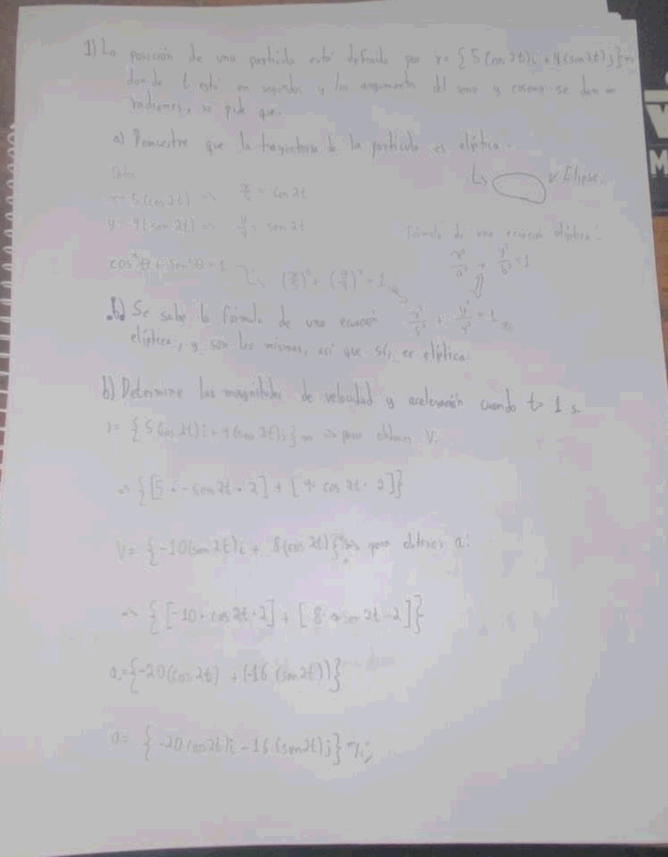 1) La posición de una partícula está definida por r = {5(cos 2t)i + 4(sen 2t)j} m
donde t está en segundos y los argumentos del seno y coseno se dan en
radianes, se pide que:
a) Demuestre que la trayectoria de la partícula es elíptica.
↳ Elipse.
x = 5(cos 2t) => x/5 = cos 2t
y = 4(sen 2t) => y/4 = sen 2t
Fórmula de una ecuación elíptica:
x²/a² + y²/b² = 1
cos²θ + sen²θ = 1 ↳ (x/5)² + (y/4)² = 1
x²/5² + y²/4² = 1
Se sabe la fórmula de una ecuación
elíptica, y son las mismas, así que sí, es elíptica
b) Determine las magnitudes de velocidad y aceleración cuando t = 1 s.
r = {5(cos 2t)i + 4(sen 2t)j} m => para obtener V:
=> {[5 · -sen 2t · 2] + [4 · cos 2t · 2]}
V = {-10(sen 2t)i + 8(cos 2t)} m/s para obtener a:
=> {[-10 · cos 2t · 2] + [8 · -sen 2t · 2]}
a = {-20(cos 2t) + (-16(sen 2t))}
a = {-20(cos 2t)i - 16(sen 2t)j} m/s²